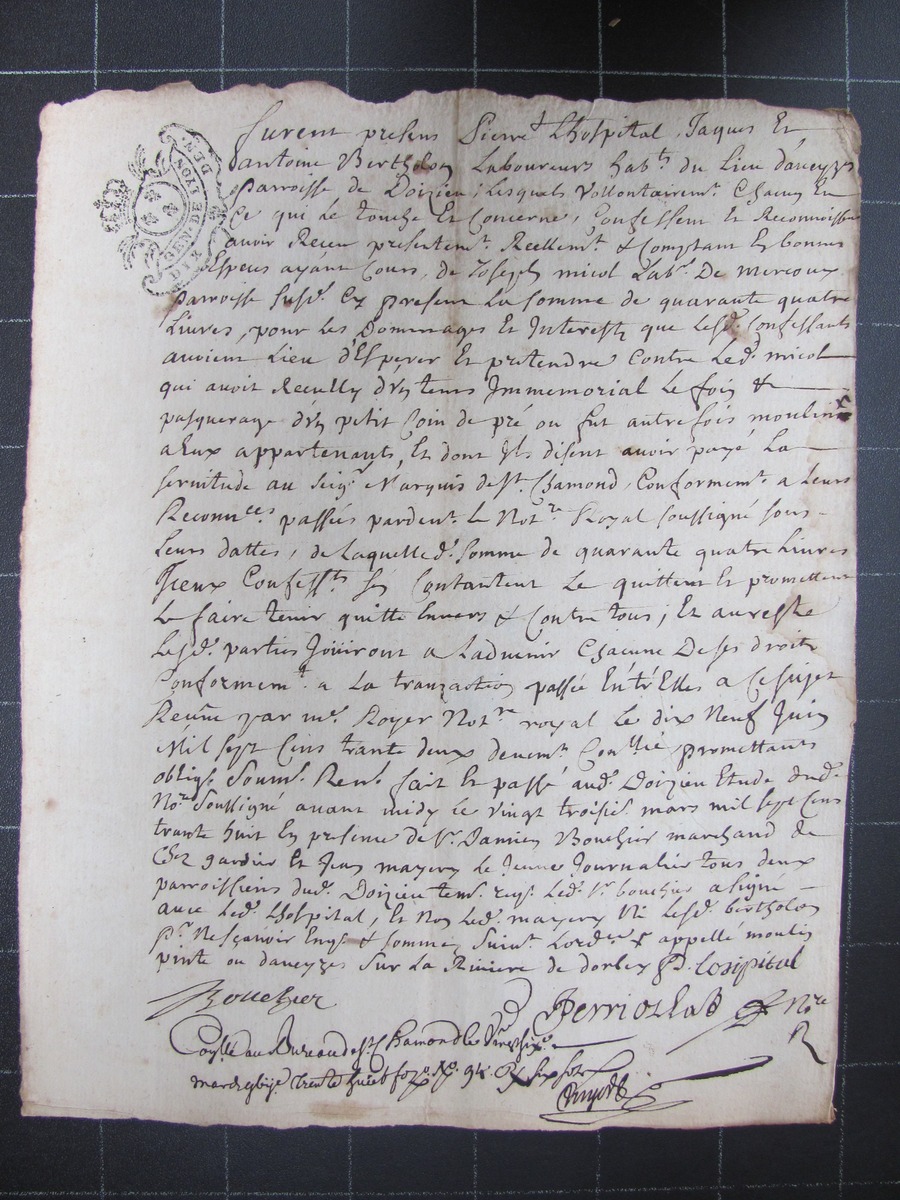 GEN. DE LYON
DIX DEN.
furent presens Pierre Lhospital, Jaques Et
antoine Bertholon Laboureurs habts. du Lieu daveyzes
parroisse de Doizieu, Lesquels vollontairemt. Chacun En
Ce qui Le touche Et Concerne, Confessent Et Reconnoissent
avoir Receu presentemt. Reellemt. & Comptant En bonnes
Especes ayant Cours, de Joseph micol Labr. De mercoux
parroisse susd. Cy present La somme de quarante quatre
Livres, pour Les Dommages Et Interests que Lesd. Confessants
avoient Lieu d'Esperer Et pretendre Contre Led. micol
qui avoit Recully d'un tems Immemorial Le foin &
pasquerage d'un petit Coin de pré ou fut autrefois moulin
a Eux appartenants, Et dont Ils disent avoir payé La
servitude au Seigr. Marquis de St. Chamond, Conformemt. a Leurs
Reconnces. passées pardevt. Le Notre. Royal soussigné sous
Leurs dattes, de Laquelle d. somme de quarante quatre Livres
Iceux Confessts. se Contantent Le quittent Et promettent
Le faire tenir quitte Envers & Contre tous; Et au reste
Lesd. parties Joüiront a Ladvenir Chacune De ses droits
Conformemt. a La tranzaction passée Entr'Elles a Ce sujet
Receüe par me. Royer Notre royal Le dix Neuf Juin
Mil sept Cens trante deux devemt. Conllée, promettants
oblige. Soumt. Rent. fait Et passé aud. Doizieu Etude dud.
Nore. Soussigné avant midy Le vingt troisie. mars mil sept Cens
trante huit En presence de Sr. Damien Bouchier marchand de
Chez gardier Et Jean mayery Le Jeune Journalier tous deux
parroissiens dud. Doizieu tems. reqs. Led. Sr. boucher a signé
avec Led. Lhospital, Et Non Led. mayery Ni Lesd. bertholon
pr. Ne sçavoir Enqs. & sommes suivt. Lorde. & appellé moulin
pinte ou daveyzes sur La Riviere de dorley P. Losipital
Bouchier
Perriollas Nore
R
Conllé au Bureau de St. Chamond le Vingt six
mars 
trente huict fo. No. 94. R. six sols